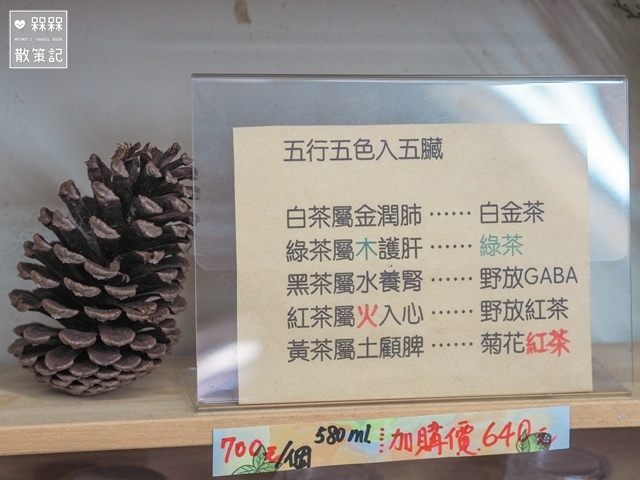 槑槑
MEIMEI'S TRAVEL BOOK
散策記
五行五色入五臟
白茶屬金潤肺⋯⋯白金茶
綠茶屬木護肝⋯⋯綠茶
黑茶屬水養腎⋯⋯野放GABA
紅茶屬火入心⋯⋯野放紅茶
黃茶屬土顧脾⋯⋯菊花紅茶
700元/個 580ml 加購價640元